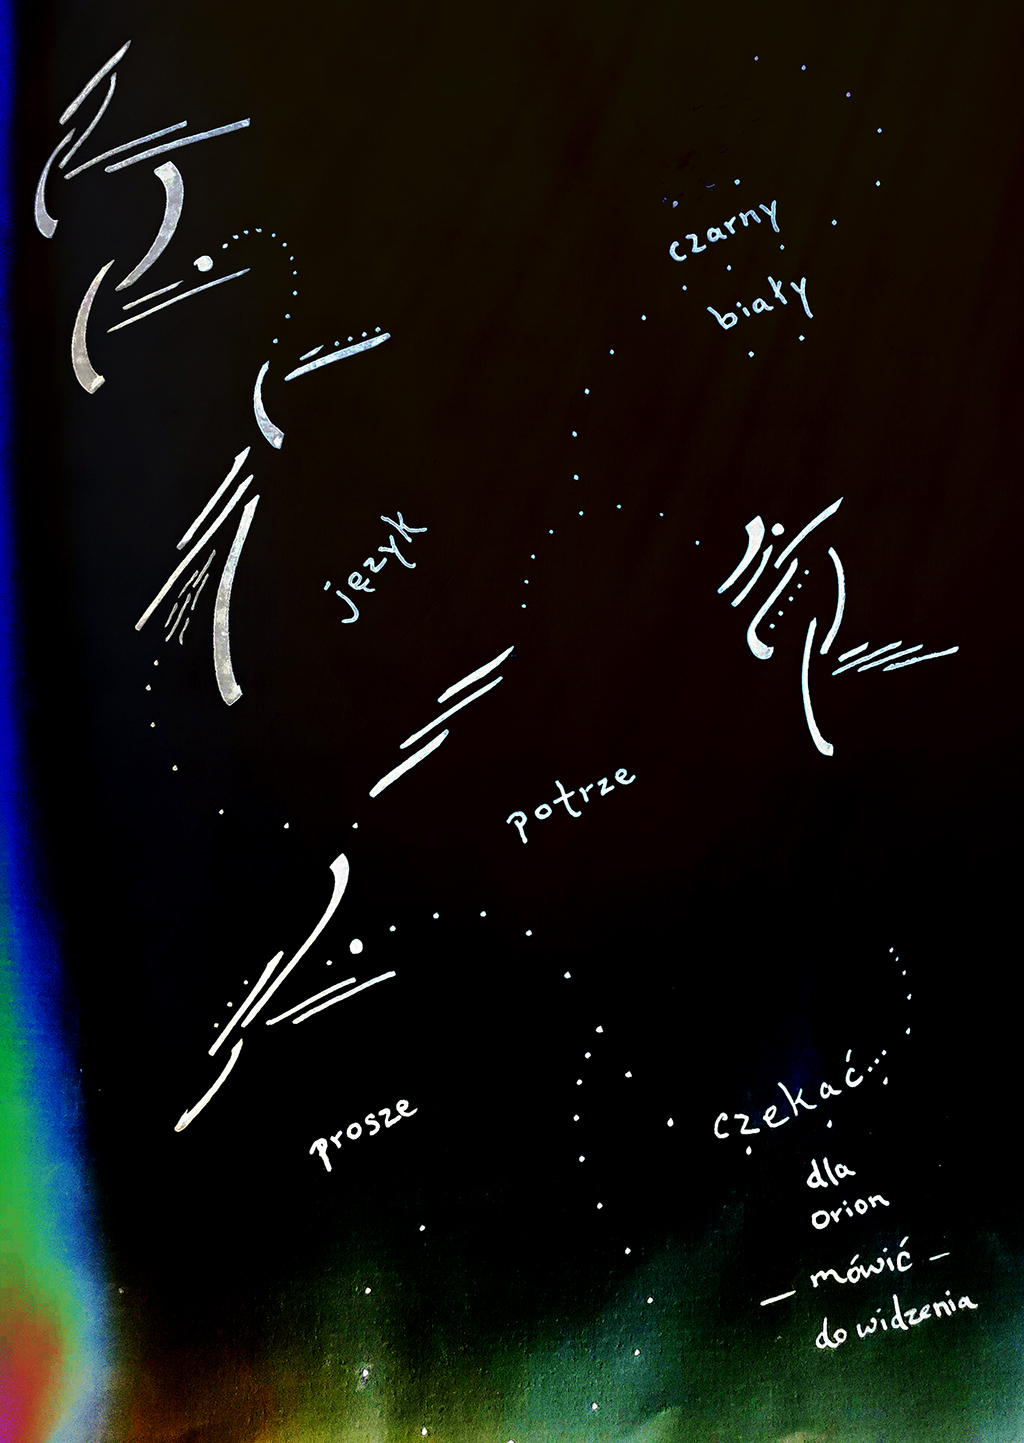 czarny
biały
język
potrze
prosze
czekać...
dla
orion
— mówić —
do widzenia